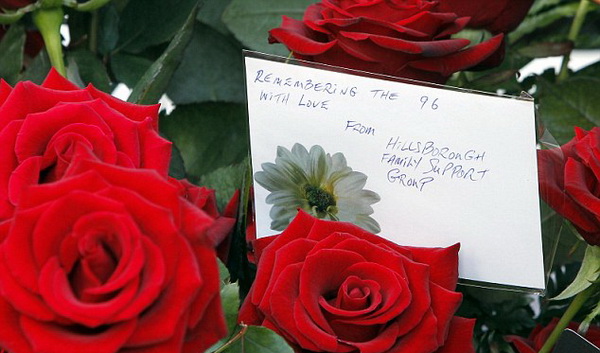 REMEMBERING THE 96
WITH LOVE
FROM
HILLSBOROUGH
FAMILY SUPPORT
GROUP